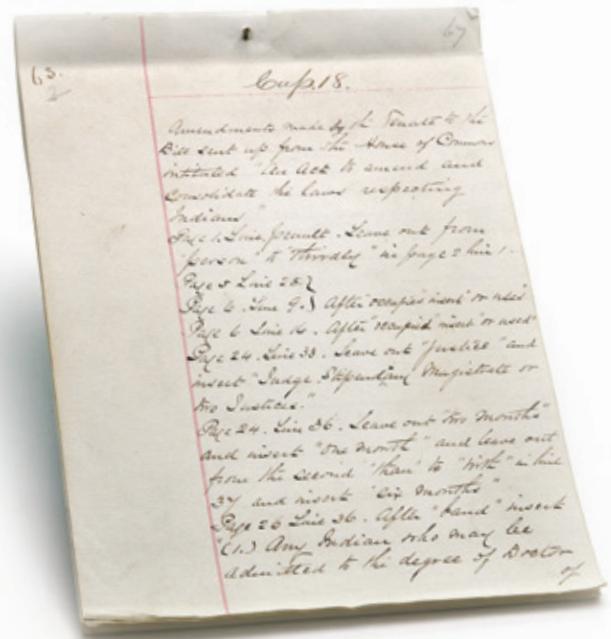 67
63.
2
Cap. 18.
Amendments made by the Senate to the
Bill sent up from the House of Commons
intituled "An Act to amend and
Consolidate the laws respecting
Indians"
Page 1. Line penult. Leave out from
"person" to "Thirdly" in page 2 line 1.
Page 5 Line 28
Page 6. Line 9. After "occupied" insert "or used"
Page 6 Line 14. After "occupied" insert "or used"
Page 24. Line 33. Leave out "Justice" and
insert "Judge, Stipendiary Magistrate or
two Justices."
Page 24. Line 36. Leave out "two months"
and insert "one month" and leave out
from the second "than" to "with" in line
37 and insert "six months"
Page 26 Line 36. After "band" insert
"(1.) Any Indian who may be
admitted to the degree of Doctor
of